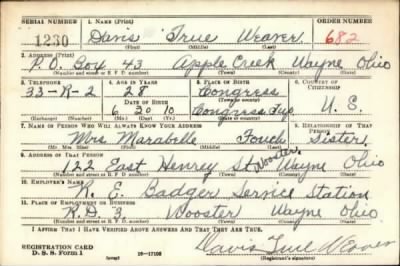 SERIAL NUMBER 1. NAME (Print) ORDER NUMBER
1230 Davis True Weaver 682
(First) (Middle) (Last)
2. ADDRESS (Print)
P.O. Box 43 Apple Creek Wayne Ohio
(Number and street or R. F. D. number) (Town) (County) (State)
3. TELEPHONE 4. AGE IN YEARS 5. PLACE OF BIRTH 6. COUNTRY OF CITIZENSHIP
33-R-2 28 Congress
DATE OF BIRTH (Town or county)
6 20 10 Congress Twp. U.S.
(Mo.) (Day) (Yr.) (State or country)
7. NAME OF PERSON WHO WILL ALWAYS KNOW YOUR ADDRESS 8. RELATIONSHIP OF THAT PERSON
Mrs. Marabelle Fouch Sister
(Mr., Mrs., Miss) (First) (Middle) (Last)
9. ADDRESS OF THAT PERSON
122 East Henrey St. Wooster, Wayne Ohio
(Number and street or R. F. D. number) (Town) (County) (State)
10. EMPLOYER'S NAME
R. E. Badger Service Station
11. PLACE OF EMPLOYMENT OR BUSINESS
R.D. 3. Wooster Wayne Ohio
(Number and street or R. F. D. number) (Town) (County) (State)
I AFFIRM THAT I HAVE VERIFIED ABOVE ANSWERS AND THAT THEY ARE TRUE.
REGISTRATION CARD
D. S. S. Form 1 (over) 16-17105 Davis True Weaver